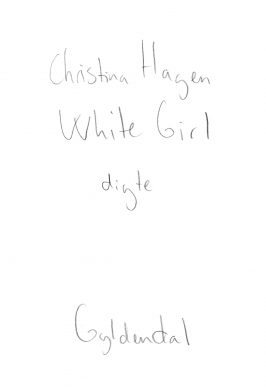 Christina Hagen
White Girl
digte
Gyldendal